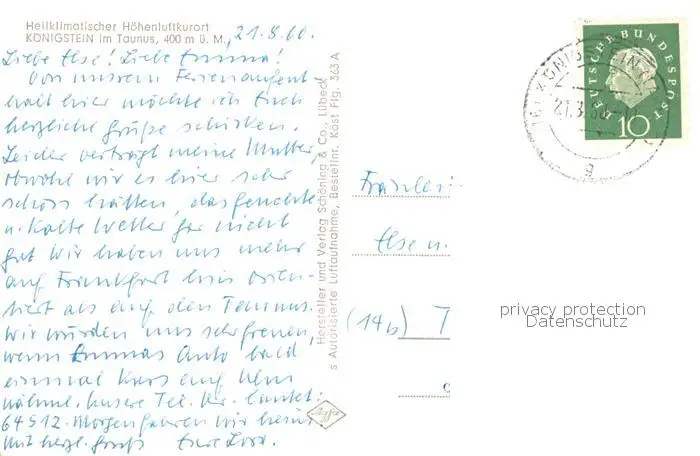 Heilklimatischer Höhenluftkurort
KÖNIGSTEIN im Taunus, 400 m ü. M. 21.8.60.
Liebe Else! Liebe Emma!
Von unserem Ferienaufent
halt hier möchte ich Euch
herzliche Grüße schicken.
Leider verträgt meine Mutter,
obwohl wir es hier sehr
schön hätten, das feuchte
u. kalte Wetter gar nicht
gut. Wir haben uns mehr
auf Frankfurt hin orien-
tiert als auf den Taunus.
Wir würden uns sehr freuen,
wenn Emmas Auto bald
einmal Kurs auf
nähme. Unsere Tel. Nr. lautet:
64512. Morgen fahren wir heim
Mit herzl. Gruß Eure Lora.
Hersteller und Verlag Schöning & Co., Lübeck
s Autorisierte Luftaufnahme, Bestellnr. Köst Flg. 363 A
Agfa
DEUTSCHE BUNDESPOST
10
KÖNIGSTEIN
a
Fräulei
Else u.
(14b) T
privacy protection
Datenschutz